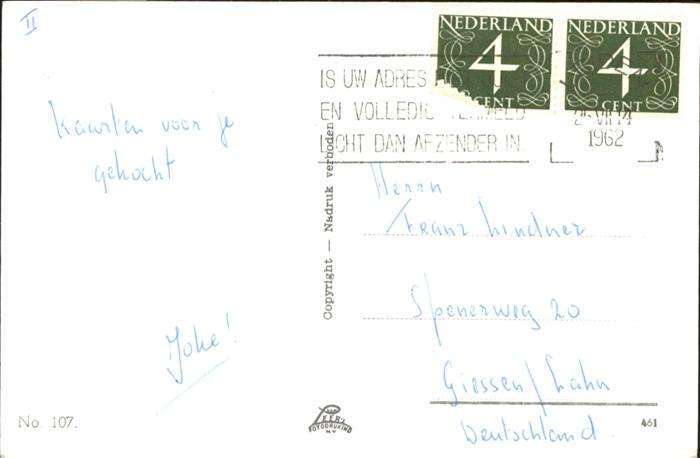 II
NEDERLAND
4
CENT
NEDERLAND
4
CENT
IS UW ADRES
EN VOLLEDIG VERMELD
LICHT DAN AFZENDER IN
VII 14
1962
Kaarten voor je
gekocht
Joke!
Copyright — Nadruk verboden
Herrn
Franz Lindner
Spenerweg 20
Giessen/Lahn
Deutschland.
No. 107.
VAN LEER'S
FOTODRUKIND
N.V.
461